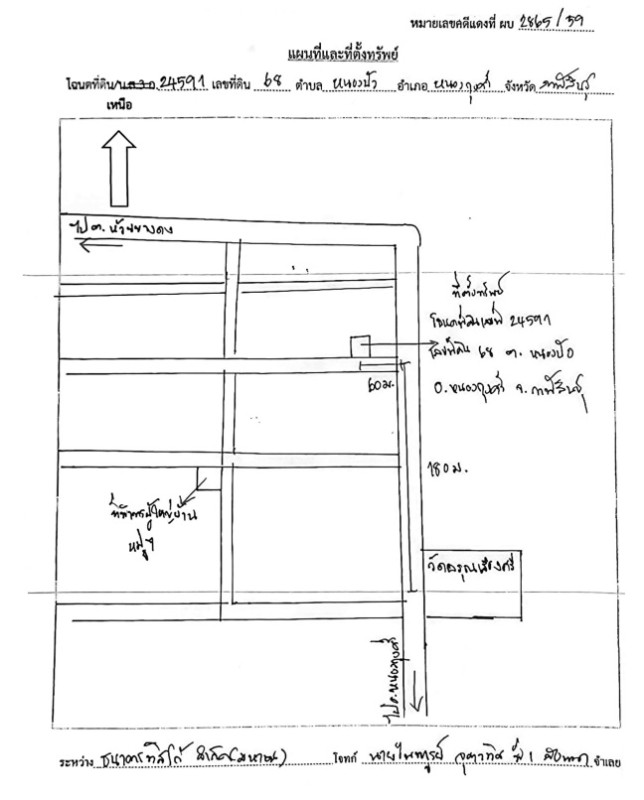 หมายเลขคดีแดงที่ ผบ 2865/59
แผนที่และที่ตั้งทรัพย์
โฉนดที่ดิน/น.ส.3ก. 24591 เลขที่ดิน 68 ตำบล หนองบัว อำเภอ หนองกุงศรี จังหวัด กาฬสินธุ์
เหนือ
ไป ต. ห้วยยางดง
ที่ตั้งทรัพย์
โฉนดที่ดินเลขที่ 24591
เลขที่ดิน 68 ต. หนองบัว
อ. หนองกุงศรี จ. กาฬสินธุ์
60 ม.
180 ม.
ที่ทำการผู้ใหญ่บ้าน
หมู่ 9
วัดอรุณ
ไป อ. หนองกุงศรี
ระหว่าง ธนาคารทิสโก้ จำกัด (มหาชน) โจทก์ นายไพฑูรย์ ที่ 1 จำเลย